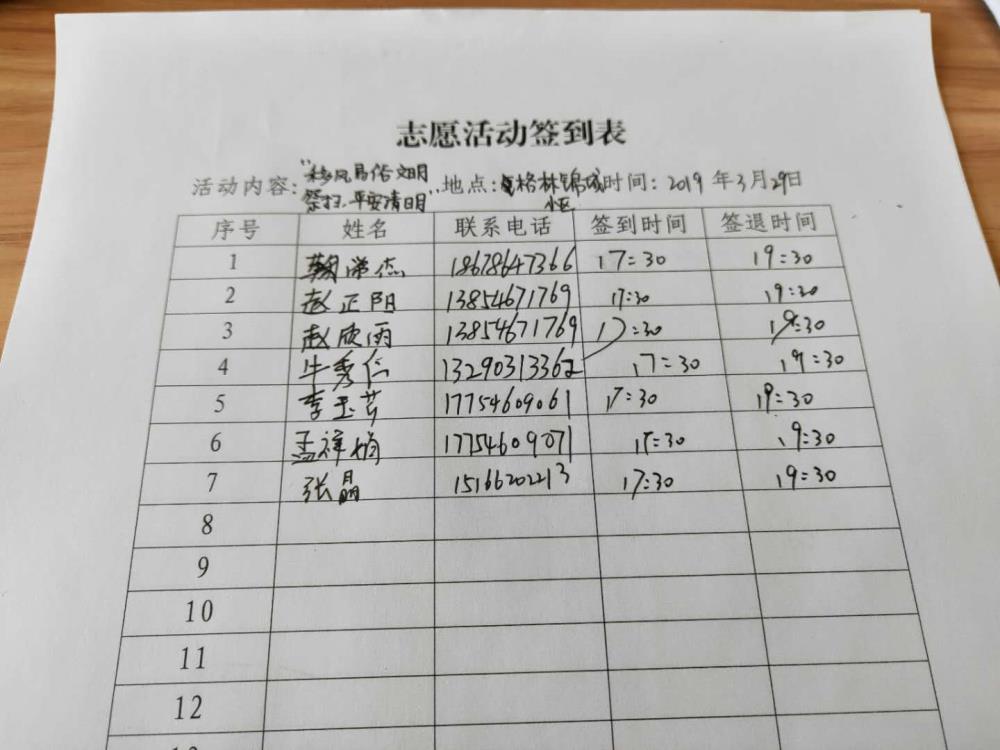 志愿活动签到表
活动内容:"移风易俗文明祭扫·平安清明" 地点:格林锦城小区 时间:2019年3月29日
序号 姓名 联系电话 签到时间 签退时间
1 杰 18678647366 17:30 19:30
2 赵正阳 13854671769 17:30 19:30
3 赵欣雨 13854671769 17:30 19:30
4 牛秀仁 13290313362 17:30 19:30
5 李玉芳 17754609061 17:30 19:30
6 孟祥娟 17754609071 17:30 19:30
7 张晶 15166202213 17:30 19:30
8
9
10
11
12